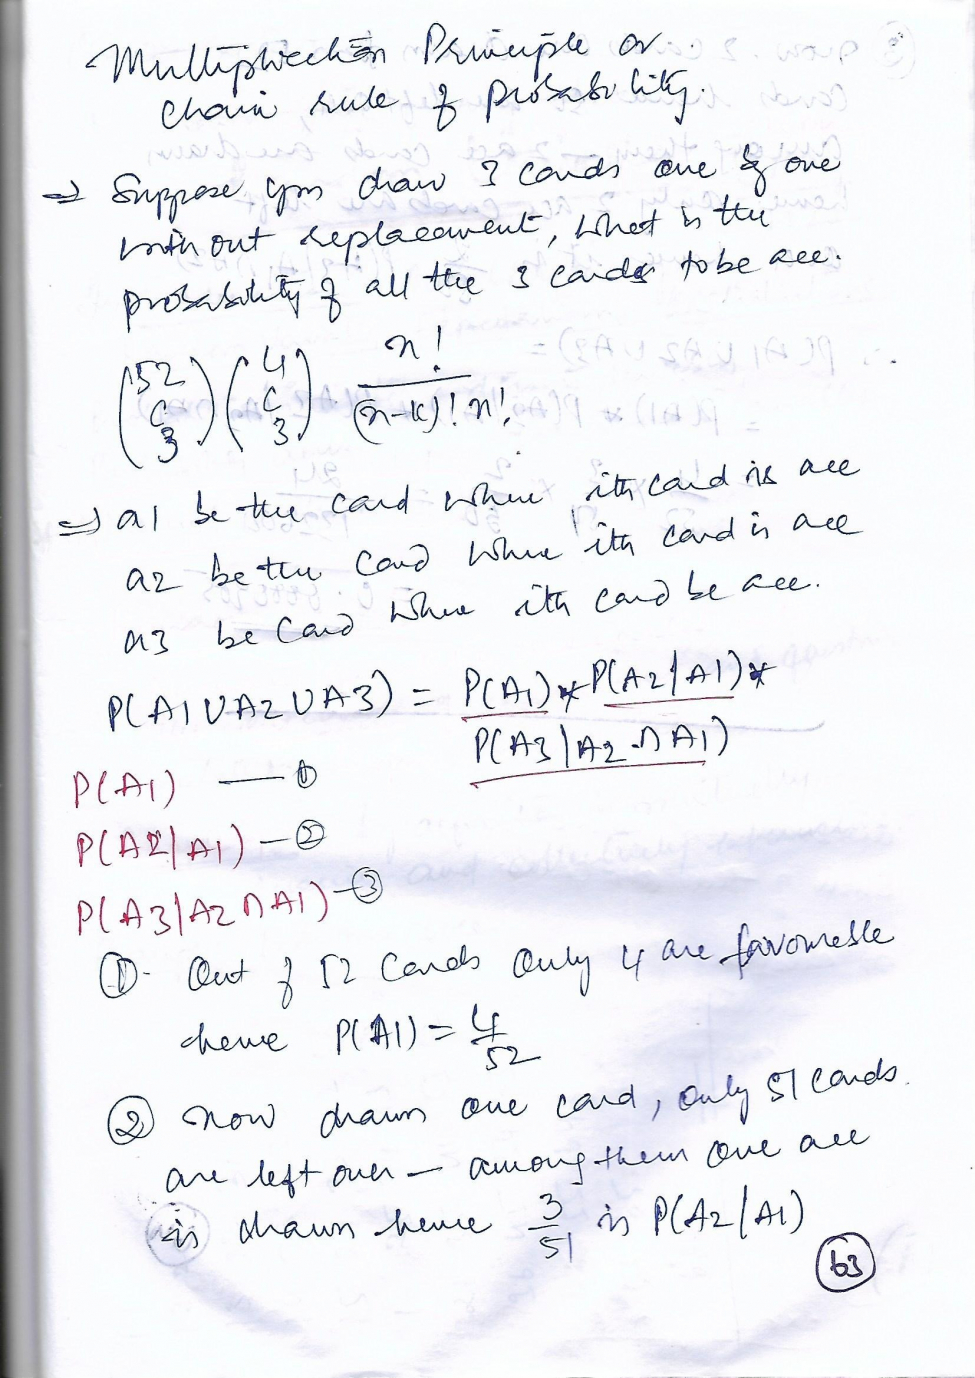 Multiplication Principle or
chain rule of probability.
⇒ Suppose you draw 3 cards one by one
without replacement, what is the
probability of all the 3 cards to be ace.
(52 C 3) (4 C 3) n! / (n-k)! n!
⇒ a1 be the card where ith card is ace
a2 be the card where ith card is ace
a3 be card where ith card be ace.
P(A1 ∪ A2 ∪ A3) = P(A1) * P(A2|A1) *
P(A3|A2 ∩ A1)
P(A1) — ①
P(A2|A1) — ②
P(A3|A2 ∩ A1) — ③
① Out of 52 cards only 4 are favourable
hence P(A1) = 4/52
② now drawn one card, only 51 cards
are left over — among them one ace
is drawn hence 3/51 is P(A2|A1)
63